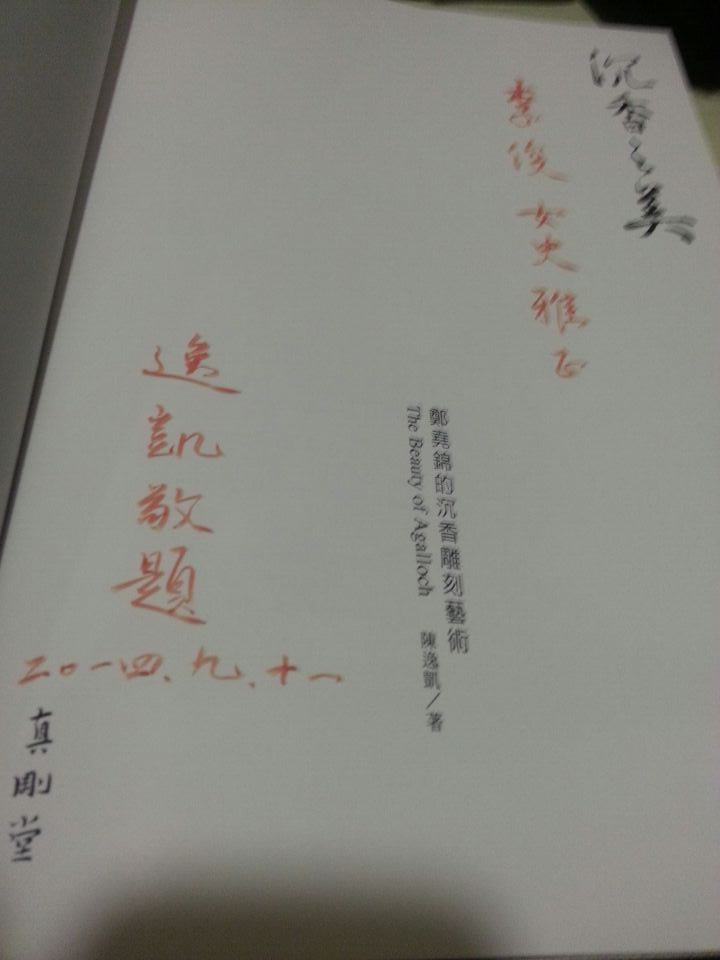 沉香之美
李俊女史雅正
鄭堯錦的沉香雕刻藝術
The Beauty of Agalloch
陳逸凱／著
逸凱敬題
二〇一四、九、十一
真剛堂